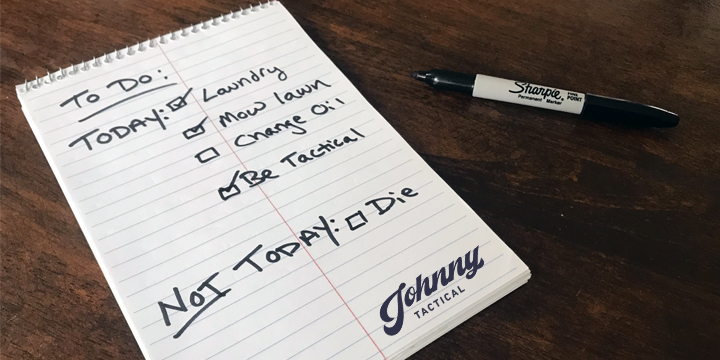 To Do:
TODAY: Laundry
Mow lawn
Change Oil
Be Tactical
NOT TODAY: Die
Johnny
TACTICAL
Sharpie
Permanent Marker
FINE POINT